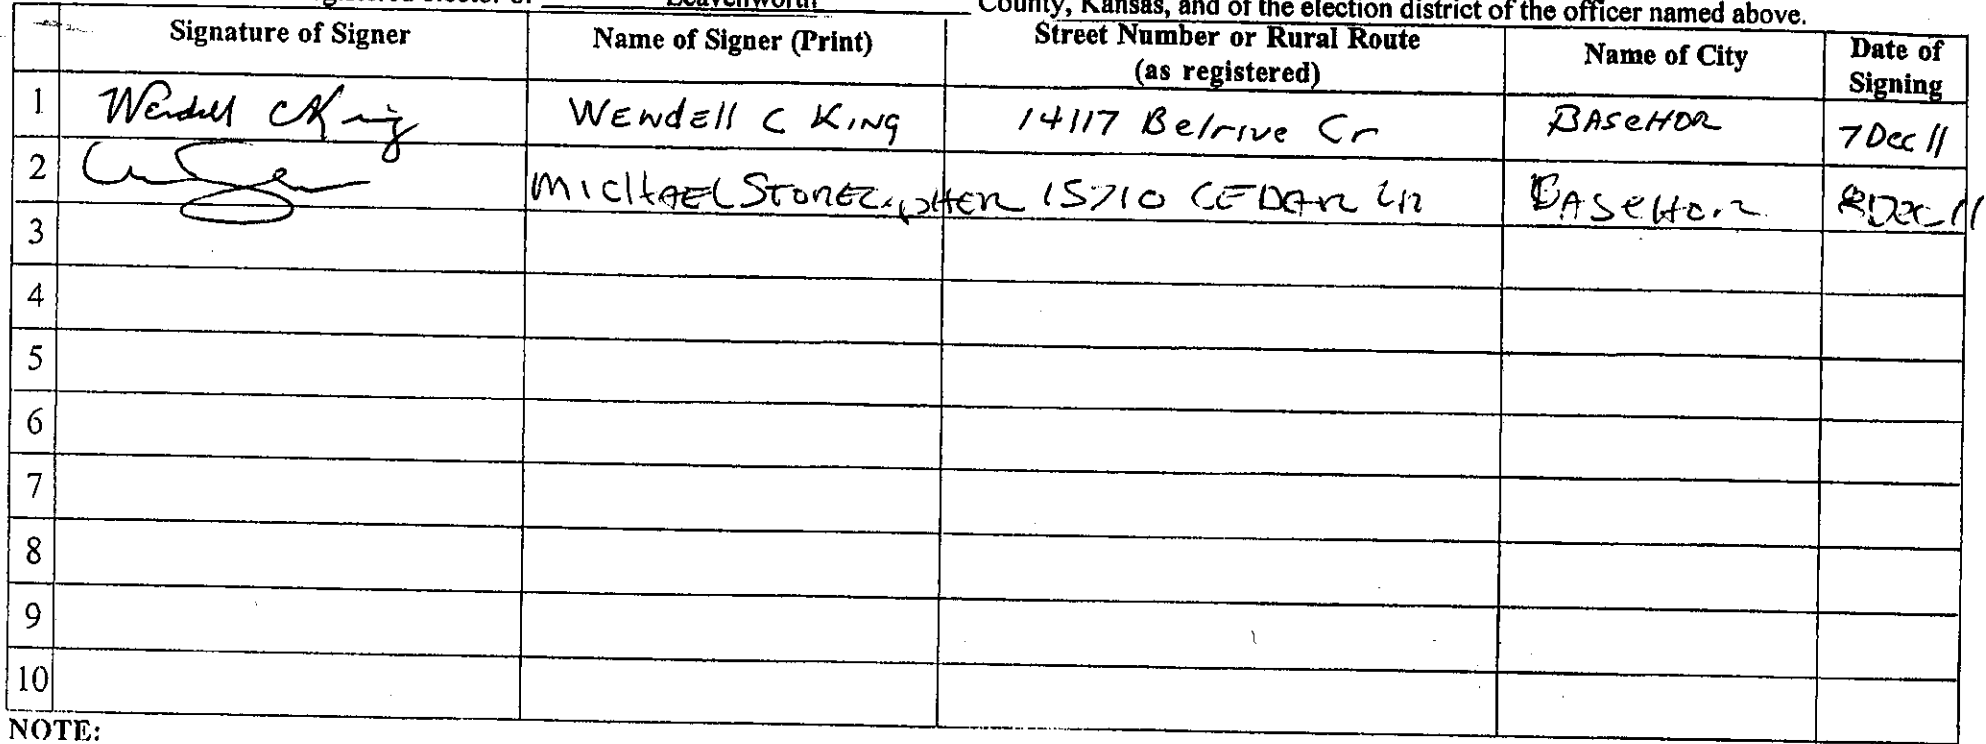 Leavenworth County, Kansas, and of the election district of the officer named above.
Signature of Signer Name of Signer (Print) Street Number or Rural Route (as registered) Name of City Date of Signing
1 Wendell C King WENDEll C KING 14117 Belrive Cr BASEHOR 7 Dec 11
2 MICHAEL 15710 CEDAR Ln BASEHOR 8 Dec 11
3
4
5
6
7
8
9
10
NOTE: